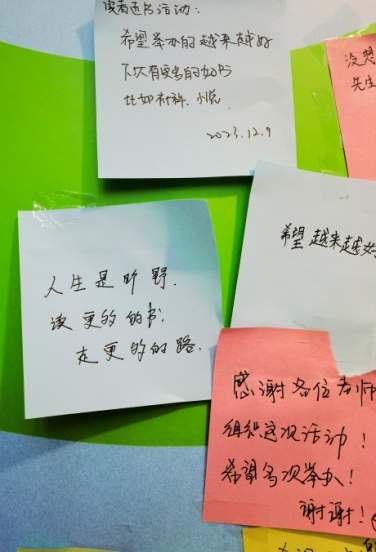 读者选书活动:
希望举办的越来越好
下次有更多的好书
比如材料、小说.
2023.12.9
没想
先生
希望越来越好
人生是旷野.
读更多的书.
走更多的路.
感谢各位老师
组织这次活动!
希望多次举办!
谢谢!